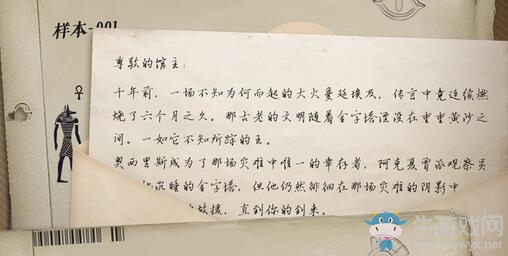 样本-001
尊敬的馆主：
千年前，一场不知为何而起的大火蔓延埃及，传言中竟连续燃
烧了六个月之久。那古老的文明随着金字塔湮没在重重黄沙之
间。一如它不知所踪的王。
奥西里斯成为了那场灾难中唯一的幸存者，阿克夏曾派观察员
沉睡的金字塔，但他仍然徘徊在那场灾难的阴影中
救援，直到你的到来。
牛游戏网
www.newyx.net